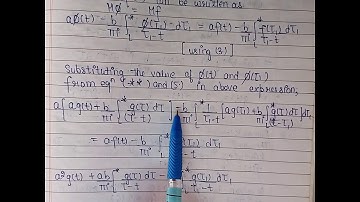 Mφ* = Mf
aφ(t) - b/πi ∫*_L φ(τ₁) dτ₁/τ₁-t = af(t) - b/πi ∫*_L f(τ₁) dτ₁/τ₁-t
[using (3)]
Substituting the value of φ(t) and φ(τ₁)
from eqn (**) and (5) in above expression,
a[ag(t) + b/πi ∫*_L g(τ) dτ/τ-t] - b/πi ∫*_L 1/τ₁-t [ag(τ₁) + b/πi ∫*_L g(τ) dτ/(τ-τ₁)] dτ₁
= af(t) - b/πi ∫*_L f(τ₁) dτ₁/τ₁-t
a²g(t) + ab/πi ∫*_L g(τ) dτ/τ-t - ab/πi ∫*_L g(τ₁) dτ₁/τ₁-t